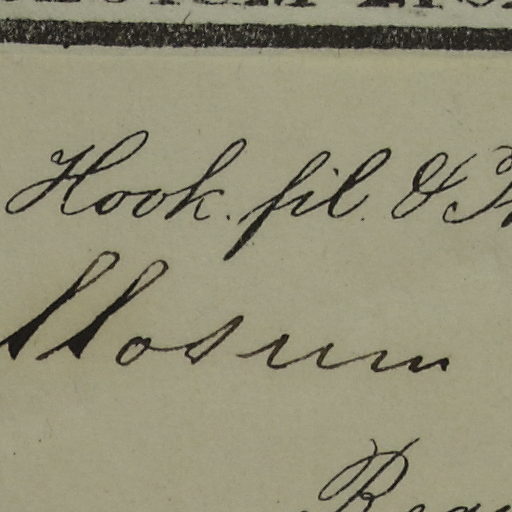 Hook. fil. & T
llosum
Reg